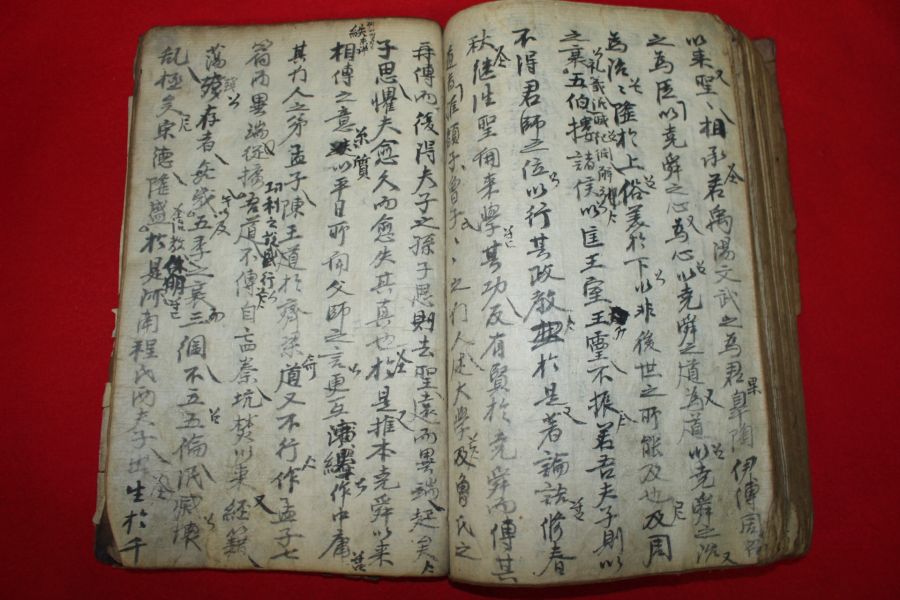 以來聖〻相承若禹湯文武之為君皐陶伊傅周召
之為臣以堯舜之心為心以堯舜之道為道以堯舜之治
為治〻隆於上俗美於下以非後世之所能及也及周
之衰五伯摟諸侯以匡王室王靈不振若吾夫子則以
不得君師之位以行其政教於是著論語修春
秋继往聖開來學其功反有賢於堯舜而傳其
顔子曾子〻〻之門人述大學及曾氏之
再傳而後得夫子之孫子思則去聖遠而異端起矣
子思懼夫愈久而愈失其真也於是推本堯舜以來
相傳之意質以平日所聞父師之言更互演繹作中庸
其門人之弟孟子陳王道於齊梁道又不行作孟子七
篇而異端從横吾道不傳自焚以來經籍
功利之說盛行
蕩殘存者無幾五季之衰三綱不五五倫泯滅壞
乱極矣宋德隆盛於是河南程氏兩夫子出生於千